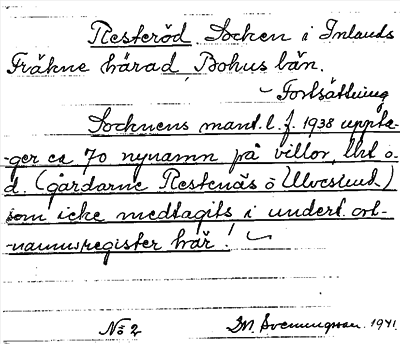 Resteröd Socken i Inlands
Fräkne härad, Bohus län.
Fortsättning
Socknens mant. l. f. 1938 uppta-
-ger ca 70 nynamn på villor, lht o.
d. (gårdarne Restenäs o Ulvesund)
som icke medtagits i undert. ort-
-namnsregister här!
No 2 D.M. Svenningsson. 1941.